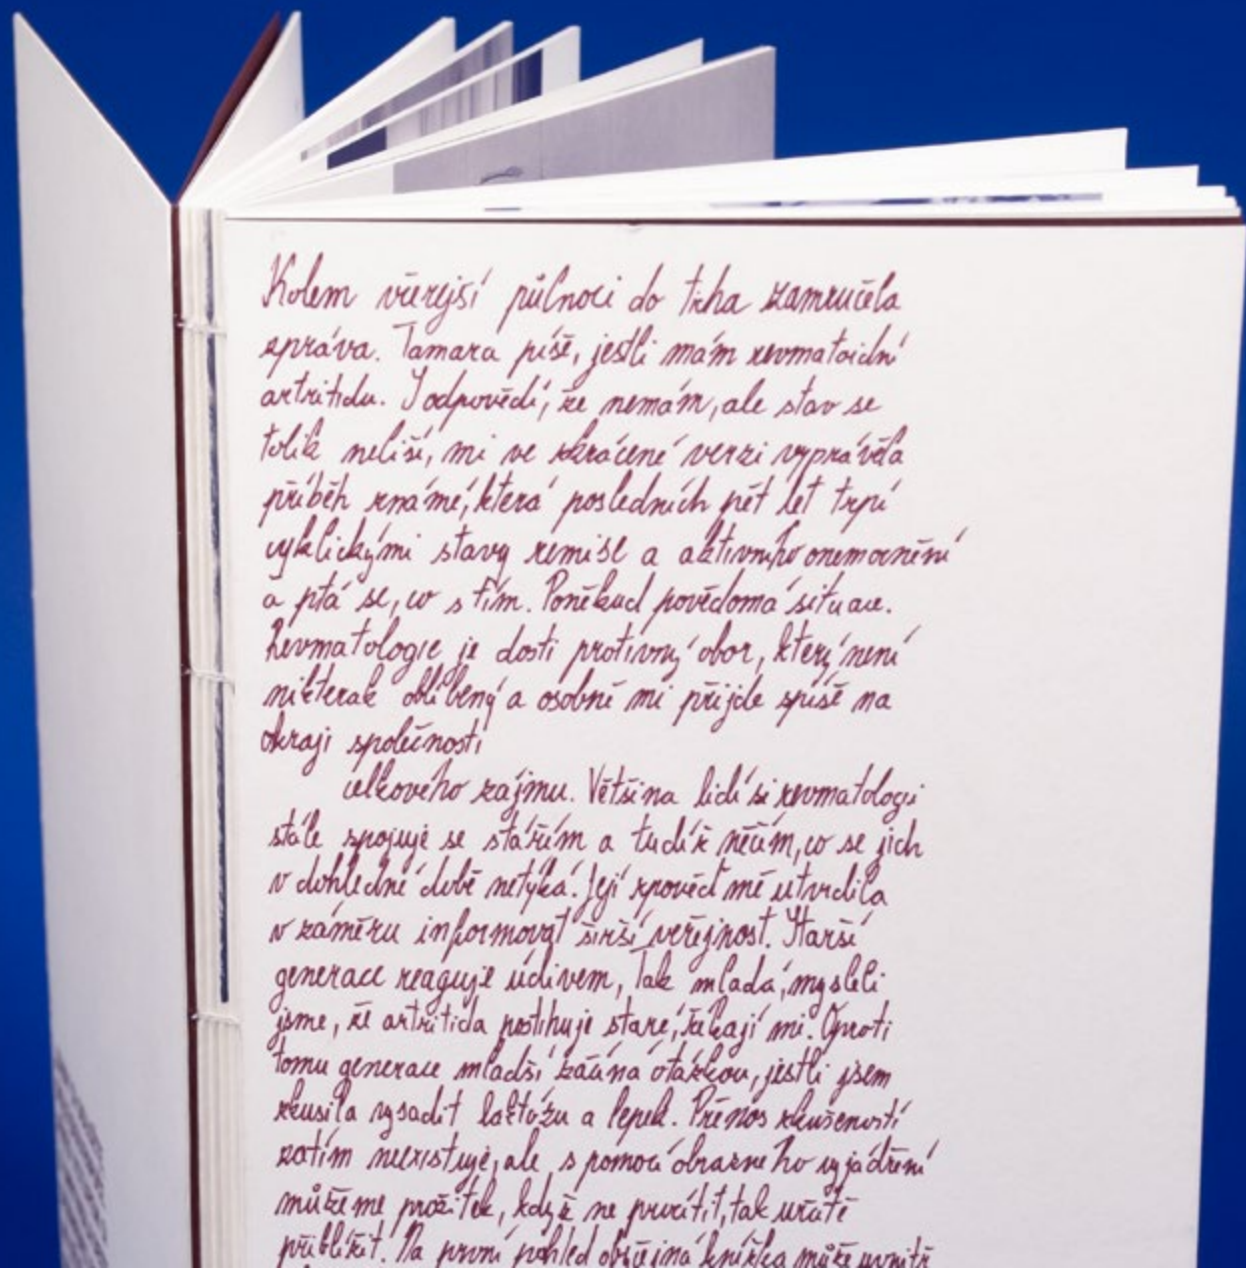 Kolem včerejší půlnoci do ticha zamručela
zpráva. Tamara píše, jestli mám revmatoidní
artritidu. S odpovědí, že nemám, ale stav se
tolik neliší, mi ve zkrácené verzi vyprávěla
příběh známé, která posledních pět let trpí
cyklickými stavy remise a aktivního onemocnění
a ptá se, co s tím. Poněkud povědomá situace.
Revmatologie je dosti protivný obor, který není
nikterak oblíbený a osobně mi přijde spíše na
okraji společnosti
celkového zájmu. Většina lidí si revmatologii
stále spojuje se stářím a tudíž něčím, co se jich
v dohledné době netýká. Její zpověď mě utvrdila
v záměru informovat širší veřejnost. Starší
generace reaguje údivem, Tak mladá, mysleli
jsme, že artritida postihuje staré, říkají mi. Oproti
tomu generace mladší začíná otázkou, jestli jsem
zkusila vysadit laktózu a lepek. Přenos zkušeností
zatím neexistuje, ale s pomocí obrazného vyjádření
můžeme prožitek, když ne procítit, tak určitě
přiblížit. Na první pohled obyčejná knížka může uvnitř